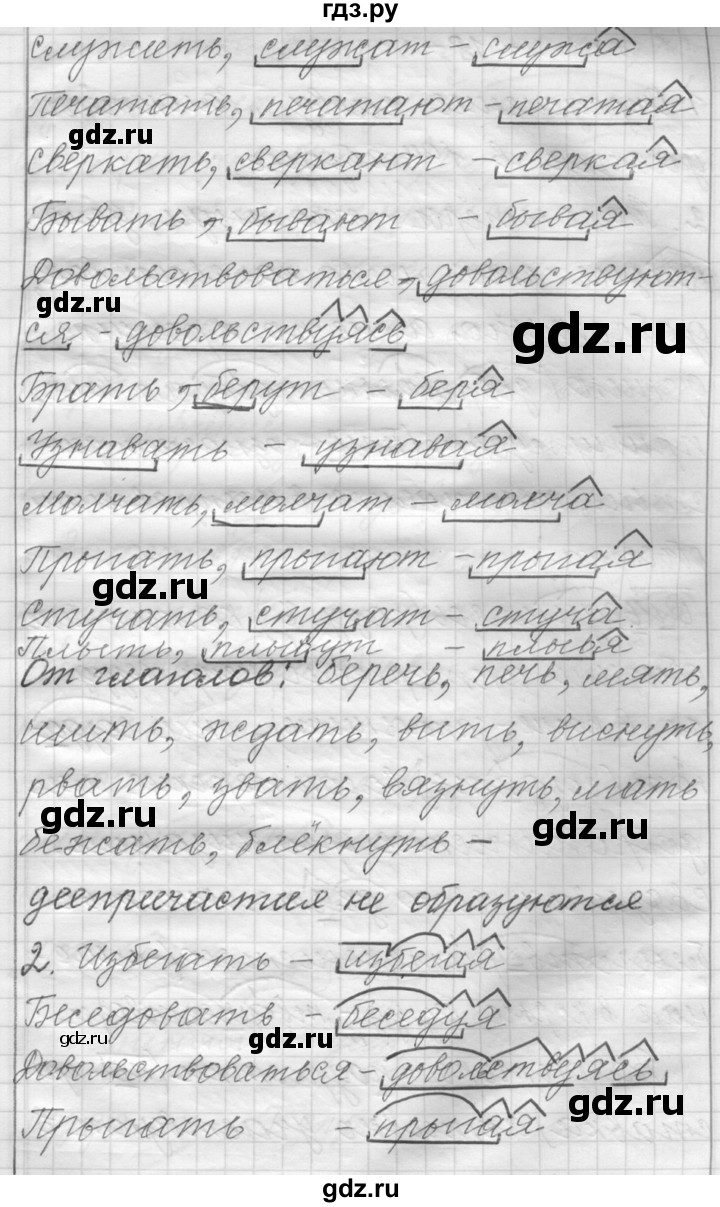 гдз.ру
служить, служат - служа
Печатать, печатают - печатая
gdz.ru
Сверкать, сверкают - сверкая
gdz.ru
Бывать, - бывают - бывая
Довольствоваться - довольствуют-
gdz.ru
ся - довольствуясь
gdz.ru
Брать - берут - беря
Узнавать - узнавая
Молчать, молчат - молча
Прыгать, прыгают - прыгая
gdz.ru
Стучать, стучат - стуча
Плыть, плывут - плывя
От глаголов: беречь, печь, мять,
шить, ждать, вить, виснуть,
рвать, звать, вязнуть, лгать
gdz.ru
gdz.ru
бежать, блёкнуть -
деепричастия не образуются
2. Избегать - избегая
Беседовать - беседуя
gdz.ru
gdz.ru
Довольствоваться - довольствуясь
gdz.ru
Прыгать - прыгая
gdz.ru